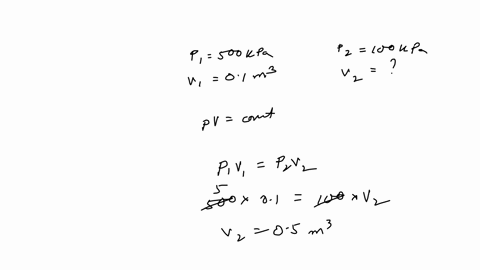 P₁ = 500 kPa
V₁ = 0.1 m³
P₂ = 100 kPa
V₂ = ?
PV = const
P₁V₁ = P₂V₂
5
500 × 0.1 = 100 × V₂
V₂ = 0.5 m³